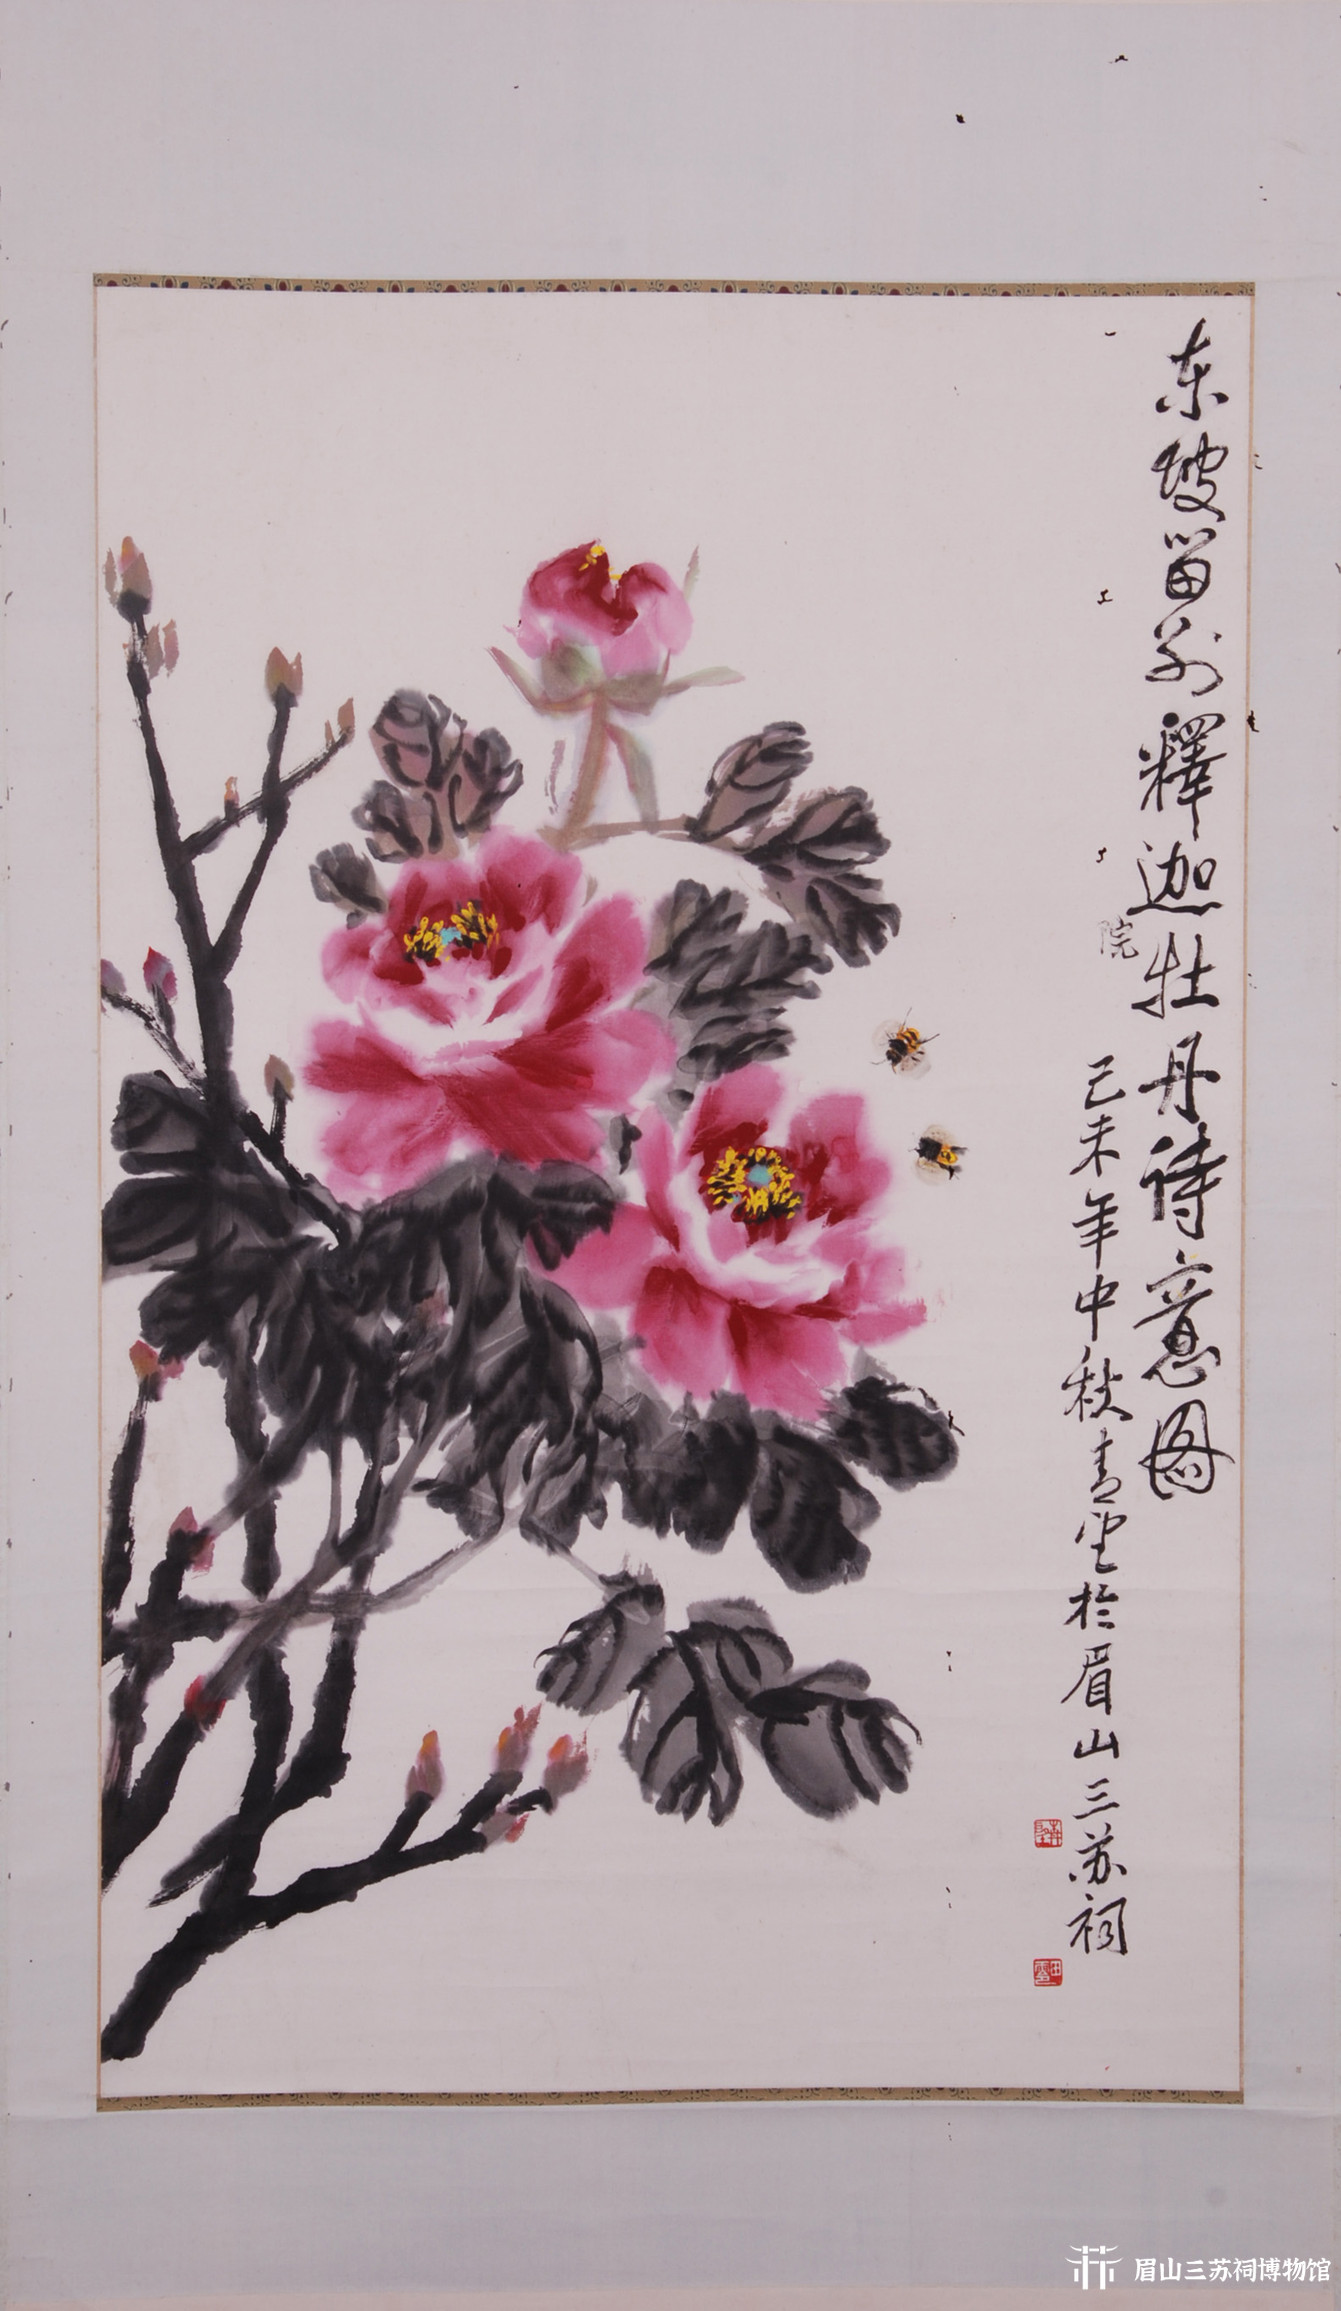 东坡留别释迦牡丹诗意图
院
己未年中秋青云於眉山三苏祠
眉山三苏祠博物馆